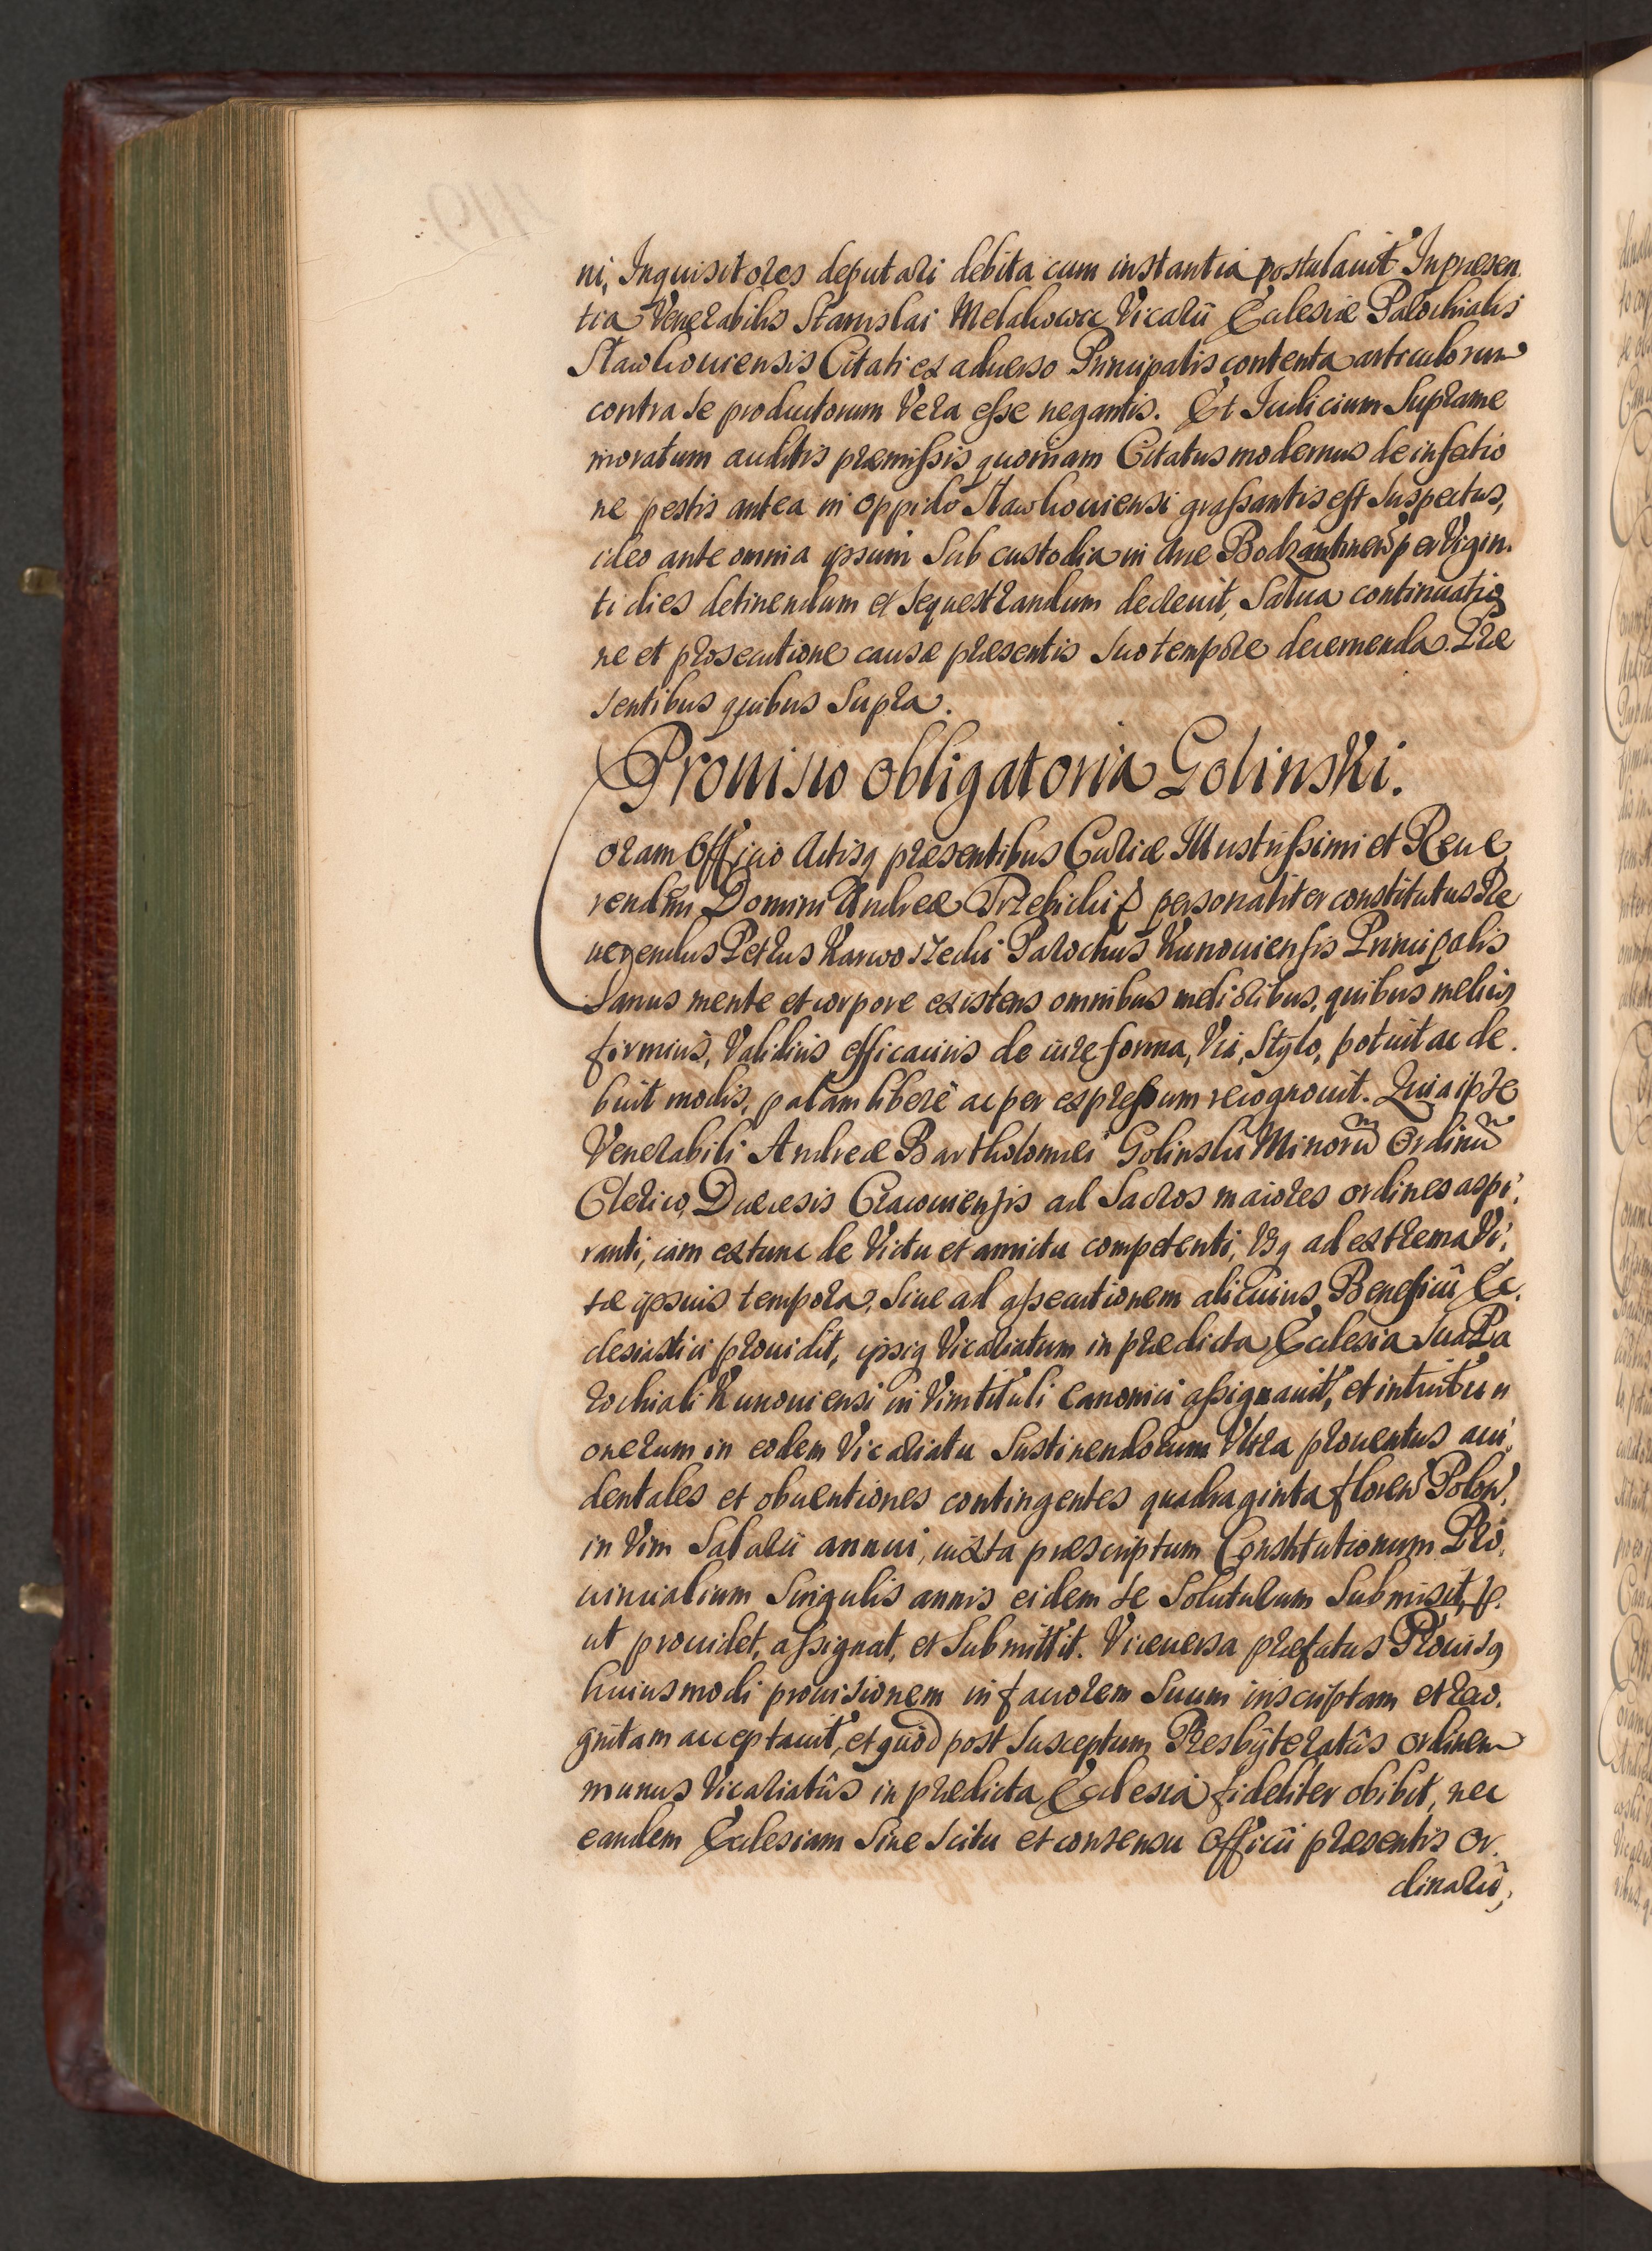 ni, Inquisitores deputari debita cum instantia postulauit. In præsen.
tia Venerabilis Stanislai Vicarii Ecclesiæ Parochialis
Slawkouiensis Citati ex aduerso Principalis contenta articulorum
contra se productorum Vera esse negantis. Et Iudicium Suprame
moratum auditis præmissis quoniam Citatus modernus de infectio
ne pestis antea in oppido Slawkouiensi grassantis est Suspectus,
ideo ante omnia ipsum Sub custodia in Arce Bodzantinen per Vigin.
ti dies detinendum et sequestrandum decreuit, Salua continuatio
ne et prosecutione causæ præsentis suo tempore decernenda. Præ
sentibus quibus Supra.
Prouisio obligatoria Golinski.
Coram Officio Actisq præsentibus Curiæ Illustrissimi et Reue
rendmi Domini Andreæ Trzebicki personaliter constitutus Re
uerendus Petrus Parochus Kunouiensis Principalis
Sanus mente et corpore existens omnibus melioribus, quibus melius
firmius, Validius efficacius de iure forma, Via, Stylo, potuit ac de.
buit modis, palam libere ac per expressum recognouit. Quia ipse
Venerabili Andreæ Bartholomæi Golinski Minorū Ordinū
Clerico, Diæcesis Cracouiensis ad Sacros maiores ordines aspi,
ranti, iam ex tunc de Victu et amictu competenti, Vsq ad extrema Vi,
tæ ipsius tempora, Siue ad assecutionem alicuius Beneficii Ec.
clesiastici prouidit, ipsiq Vicariatum in prædicta Ecclesia Sua Pa
rochiali Kunouiensi in Vim tituli Canonici assignauit, et intuitu
onerum in eodem Vicariatu Sustinendorum Vltra prouentus acci,
dentales et obuentiones contingentes quadraginta floren Polon,
in Vim Salarii annui, iuxta præscriptum Constitutionum Pro,
uincialium Singulis annis eidem se Soluturum Submisit,
ut prouidet, assignat, et Submittit. Viceuersa præfatus Prouisq
huiusmodi prouisionem in fauorem Suum inscriptam et reco.
gnitam acceptauit, et quod post Susceptum Presbÿteratûs ordinem
munus Vicariatûs in prædicta Ecclesia fideliter obibit, nec
eandem Ecclesiam Sine Scitu et consensu Officii præsentis Or.
dinarii,